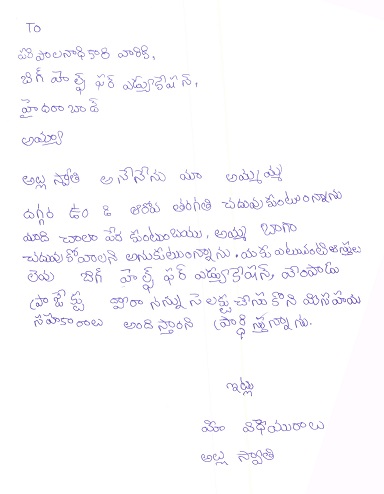 To
పరిపాలనాధికారి వారికి,
బిగ్ హెల్ప్ ఫర్ ఎడ్యుకేషన్,
హైదరాబాద్
అయ్యా
అల్లు స్వాతి అనేనేను మా అమ్మమ్మ
దగ్గర ఉం డి ఆరోవ తరగతి చదువుకుంటున్నాను
మాది చాలా పేద కుటుంబము, అయ్య బాగా
చదువుకోవాలని అనుకుంటున్నాను.
లేవు బిగ్ హెల్ప్ ఫర్ ఎడ్యుకేషన్,
ప్రాజెక్టు వారు నన్ను సెలక్ట్ చేసుకొని మీసహాయ
సహకారాలు అందిస్తారని ప్రార్ధిస్తున్నాను.
ఇట్లు
మీ విధేయురాలు
అల్లు స్వాతి